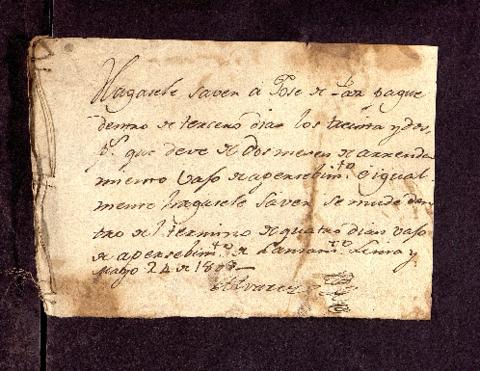 Hagasele saver á Jose de Lara pague
dentro de tercero dia los treinta y dos
p.s que deve de dos meses de arrenda
miento vajo de apersebim.to é igual
mente hagasele saver se mude den
tro del termino de quatro dias vajo
de apersebim.to de Lanzam.to Lima y
Mayo 24 de 1808
Alvarez